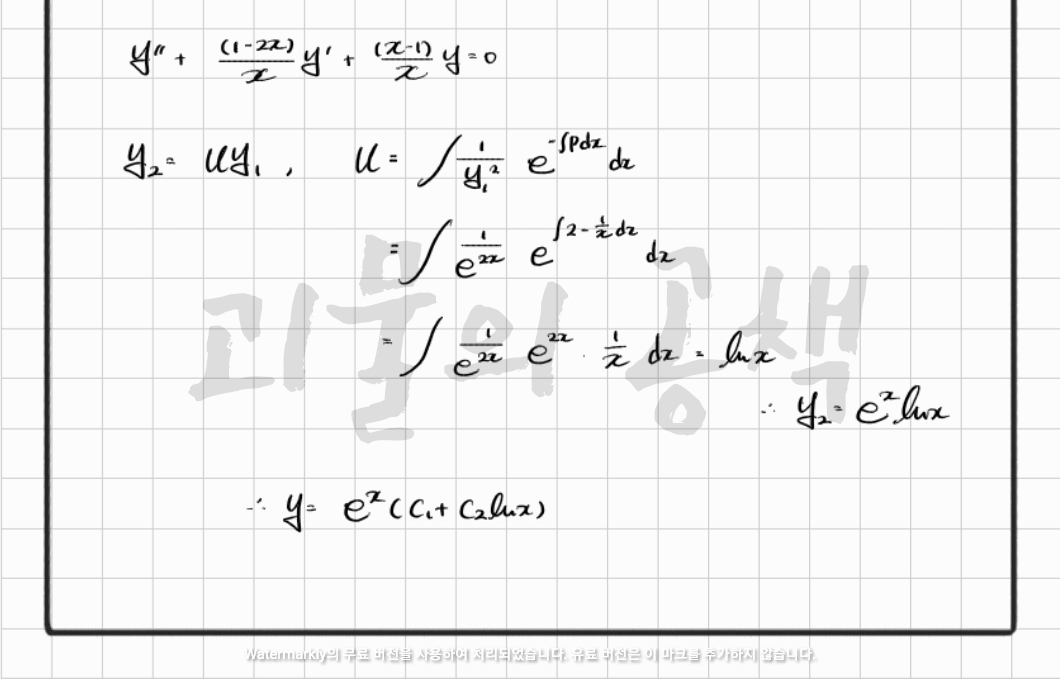 y″ + (1-2x)/x y′ + (x-1)/x y = 0
y₂ = uy₁ , u = ∫ 1/y₁² e^(-∫Pdx) dx
= ∫ 1/e^(2x) e^(∫2-1/x dx) dx
= ∫ 1/e^(2x) e^(2x) · 1/x dx = lnx
∴ y₂ = e^x lnx
∴ y = e^x (C₁ + C₂lnx)
괴물의 공책
Watermarkly의 무료 버전을 사용하여 처리되었습니다. 유료 버전은 이 마크를 추가하지 않습니다.